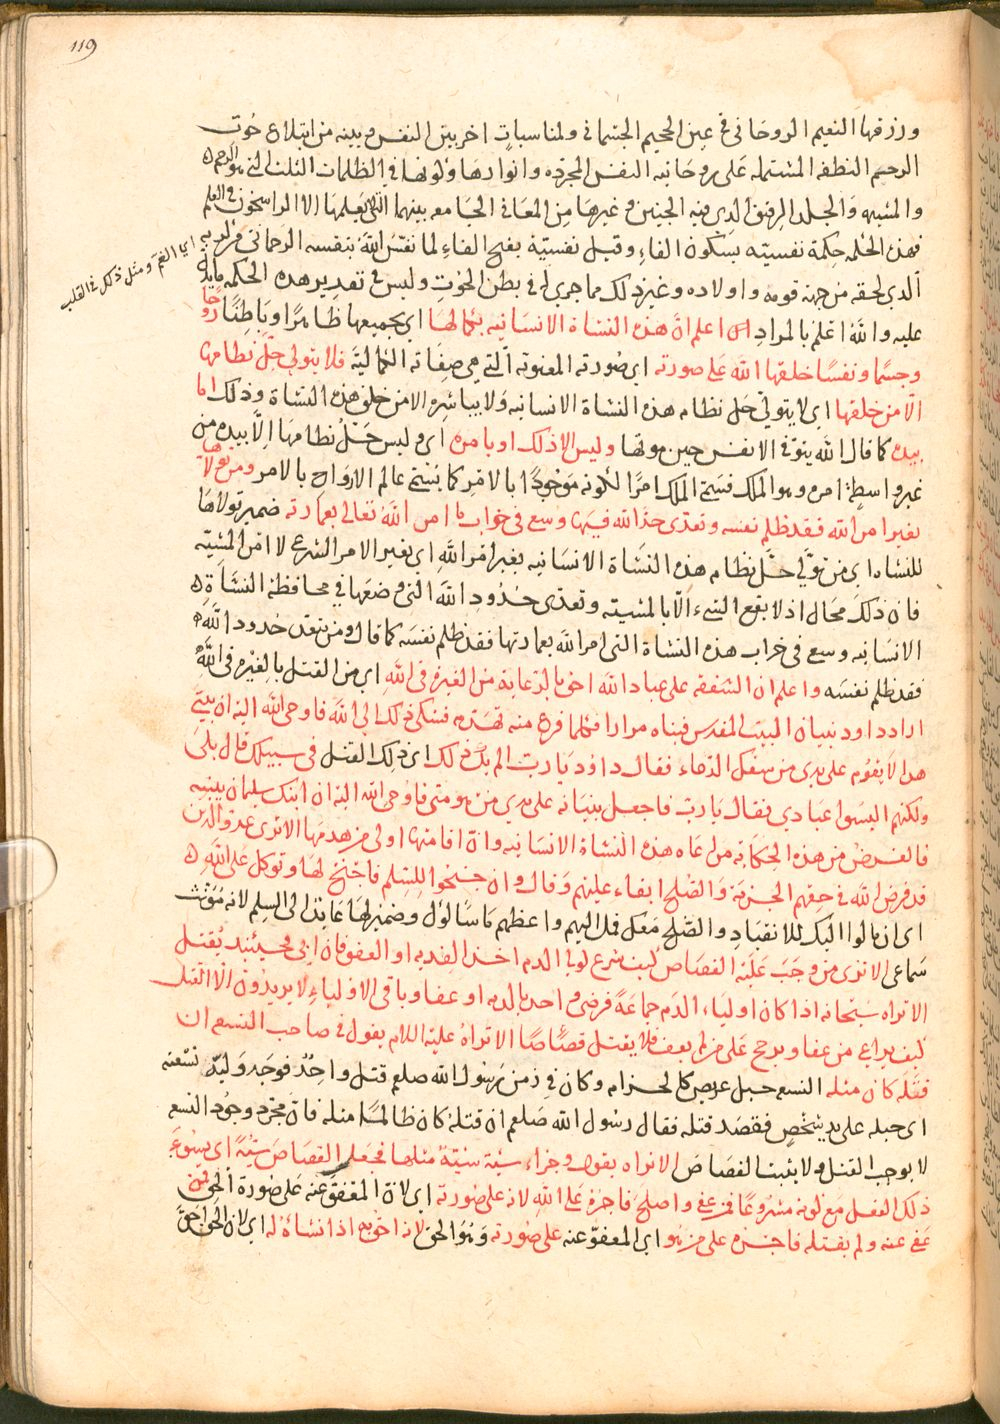 119
ورزقها النعيم الروحانى فى عين الجحيم الجسمانى ولمناسبات اخر بين النفس وبينه من ابتلاع حوت
الرحم النطفه المشتمله على روحانيه النفس المجرده وانوارها وكونها فى الظلمات الثلث التى هو الرحم
والمشيمه والجلد الرقيق الذى فيه الجنين وغيرها من المعانى الجامعه بينهما التى لا يعلمها الا الراسخون فى العلم
فهذه الحكمه حكمة نفسيته بسكون الفاء وقيل نفسية بفتح الفاء لما نفس الله بنفسه الرحمانى من كربه
اى الغم ومثل ذلك فى القلب
الذى لحقه من جهة قومه واولاده وغير ذلك مما جرى له فى بطن الحوت وليس فى تقدير هذه الحكمه ما يدل
عليه والله اعلم بالمراد اعلم ان هذه النشاة الانسانيه بكمالها اى بجميعها ظاهرا وباطنا روحا
وجسما ونفسا خلقها الله على صورته اى صورته المعنويه التى هى صفاته الكمالية فلا يتولى حل نظامها
الا من خلقها اى لا يتولى حل نظام هذه النشاة الانسانيه ولا يباشره الا من خلق هذه النشاة وذلك اما
بيده كما قال الله يتوفى الانفس حين موتها وليس الا ذلك او بامره اى وليس حل نظامها الا بيده من
غير واسطة امره وهو الملك فسمى الملك امرا لكونه موجودا بالامر كما يسمى عالم الارواح بالامر ومن تولاها
بغير امر الله فقد ظلم نفسه وتعدى حد الله فيها وسعى فى خراب ما امر الله تعالى بعمارته ضمير تولاها
للنشاه اى من تولى حل نظام هذه النشاة الانسانيه بغير امر الله اى بغير الامر الشرعى لا امر المشيه
فان ذلك محال اذ لا يقع الشىء الا بالمشيته وتعدى حدود الله التى وضعها فى محافظة النشاة
الانسانيه وسعى فى خراب هذه النشاة التى امر الله بعمارتها فقد ظلم نفسه كما قال ومن يتعد حدود الله
فقد ظلم نفسه واعلم ان الشفقه على عباد الله احق بالرعاية من الغيره فى الله اى من القتل بالغيره فى الله
اراد داود بنيان البيت المقدس فبناه مرارا فكلما فرغ منه تهدم فشكى ذلك الى الله فاوحى الله اليه ان بيتى
هذا لا يقوم على يدى من سفك الدماء فقال داود يا رب الم يك ذلك اى ذلك القتل فى سبيلك قال بلى
ولكنهم اليسوا عبادى فقال يا رب فاجعل بنيانه على يدى من هو منى فاوحى الله اليه ان ابنك سليمان يبنيه
فالغرض من هذه الحكايه مراعاه هذه النشاة الانسانيه وان اقامتها اولى من هدمها الا ترى عدو الدين
قد فرض الله فى حقهم الجزية والصلح ابقاء عليهم وقال وان جنحوا للسلم فاجنح لها وتوكل على الله
اى ان مالوا اليك للانقياد والصلح معك فمل اليهم واعظهم ما سالوك وضمير لها عايد الى السلم لانه مؤنث
سماعى الا ترى من وجب عليه القصاص كيف شرع لولى الدم اخذ الفديه او العفو فان ابى فحينئذ يقتل
الا تراه سبحانه اذا كان اولياء الدم جماعة فرضى واحد بالديه او عفا وباقى الاولياء لا يريدون الا القتل
كيف يراعى من عفا ويرجح على من لم يعف فلا يقتل قصاصا الا تراه عليه اللام يقول فى صاحب النسعه ان
قتله كان مثله النسع حبل عريض كالحزام وكان فى زمن رسول الله صلعم قتل واحد فوجد وليه نسعته
اى حبله على يد شخص فقصد قتله فقال رسول الله صلعم ان قتله كان ظالما مثله فان مجرد وجود النسع
لا يوجب القتل ولا يثبت القصاص الا تراه يقول وجزاء سيئة سيئة مثلها فجعل القصاص سيئة اى يسوء
ذلك الفعل مع كونه مشروعا فمن عفى واصلح فاجره على الله لانه على صورته اى لان المعفو عنه على صورة الحق فمن
عفى عنه ولم يقتله فاجره على من هو اى المعفو عنه على صورته وهو الحق لانه احق به اذ انشاه له اى لان الحق احق